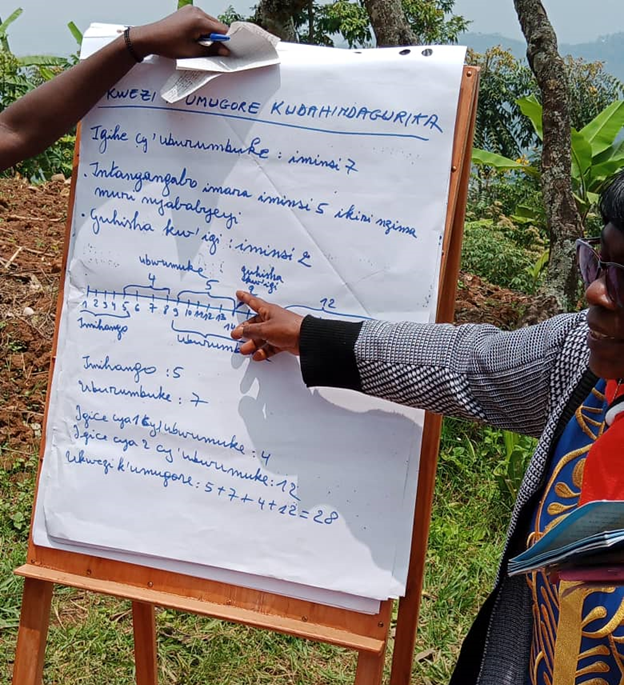 KWEZI UMUGORE KUDAHINDAGURIKA
Igihe cy'uburumbuke : iminsi 7
. Intangangabo imara iminsi 5 ikiri nzima
muri nyababyeyi
. Guhisha kw'igi : iminsi 2
uburumuke guhisha
kw'igi
4 5 2 12
1 2 3 4 5 6 7 8 9 10 11 12 13
Imihango
Uburumb
Imihango : 5
Uburumbuke : 7
Igice cya 1 cy'uburumuke : 4
Igice cya 2 cy'uburumuke : 12
Ukwezi k'umugore : 5 + 7 + 4 + 12 = 28